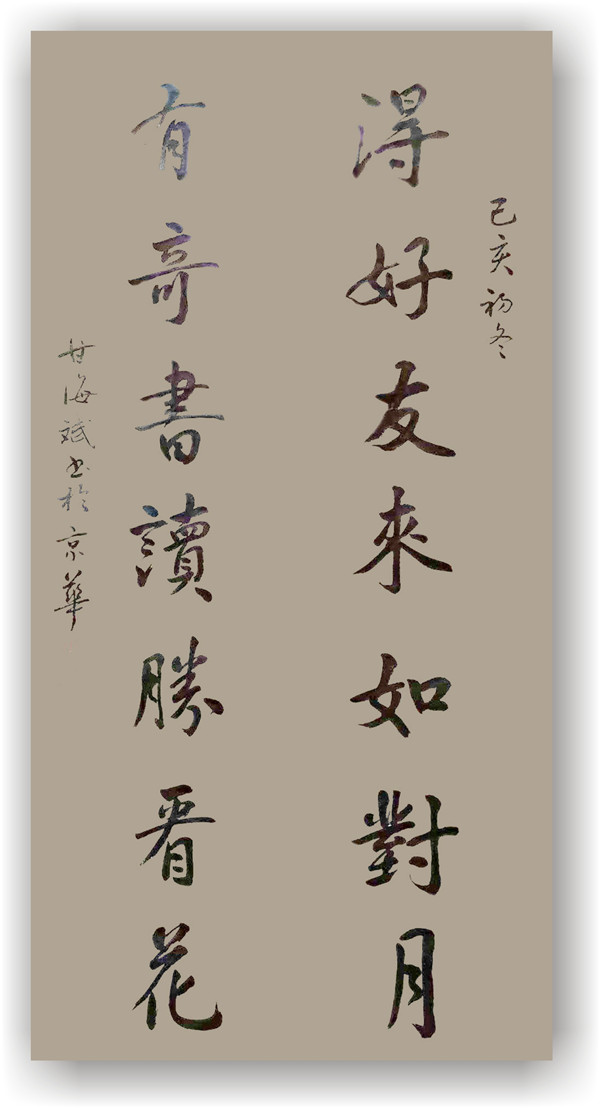 己亥初冬
得好友來如對月
有奇書讀勝看花
甘海斌书於京華